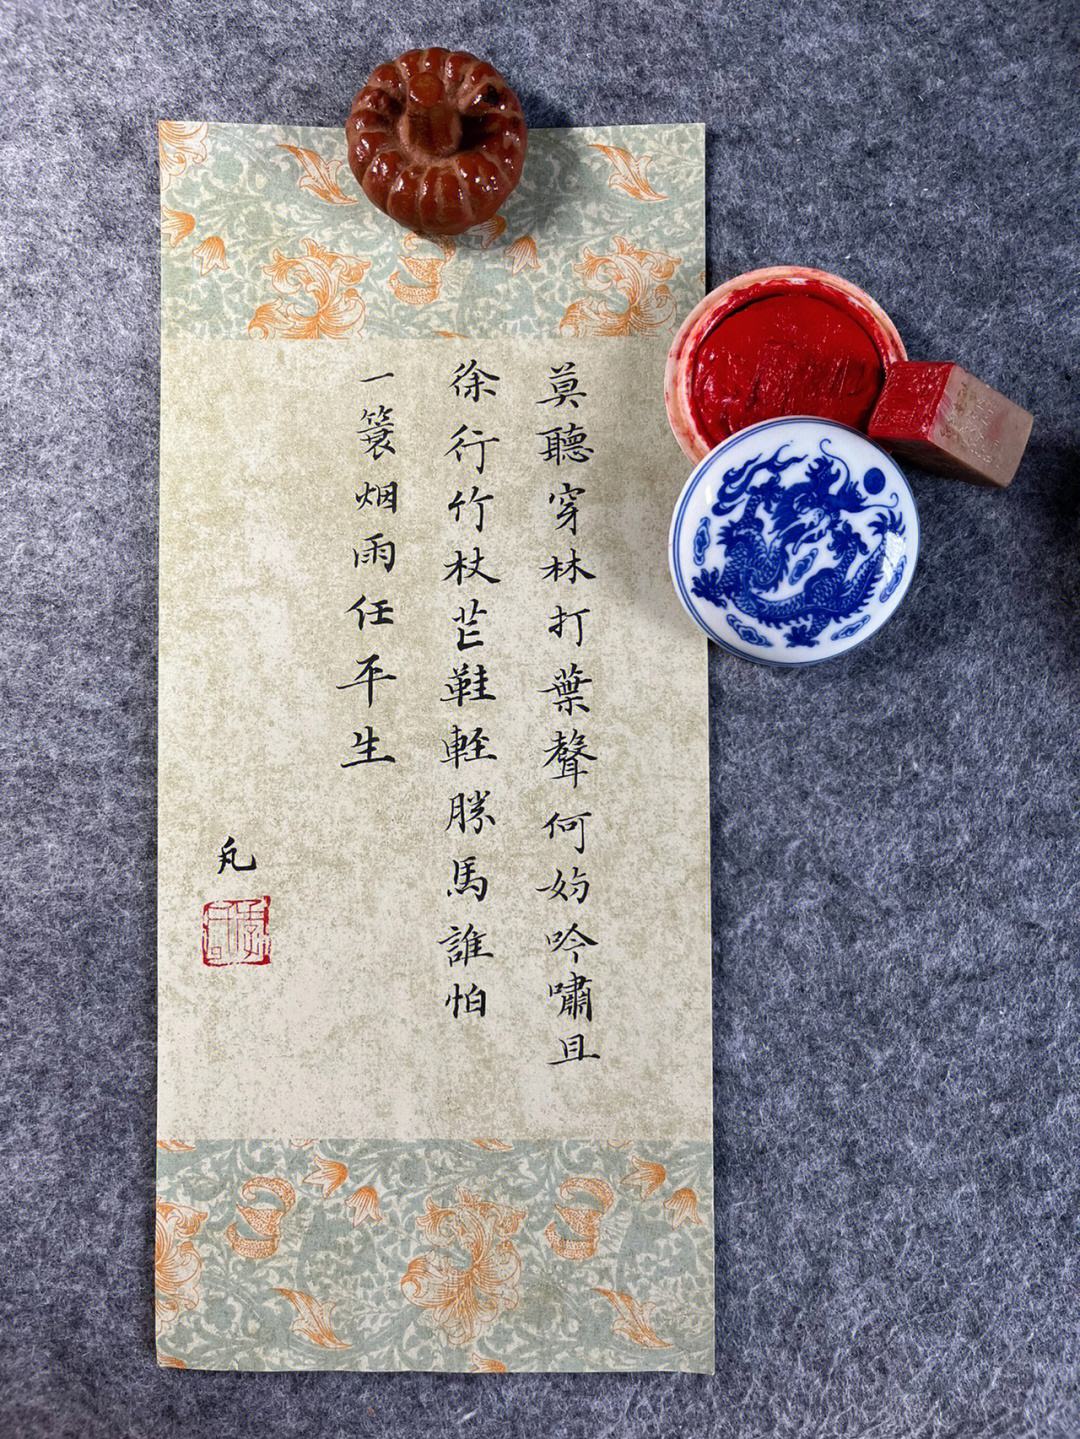 莫聽穿林打葉聲何妨吟嘯且
徐行竹杖芒鞋軽勝馬誰怕
一簑烟雨任平生